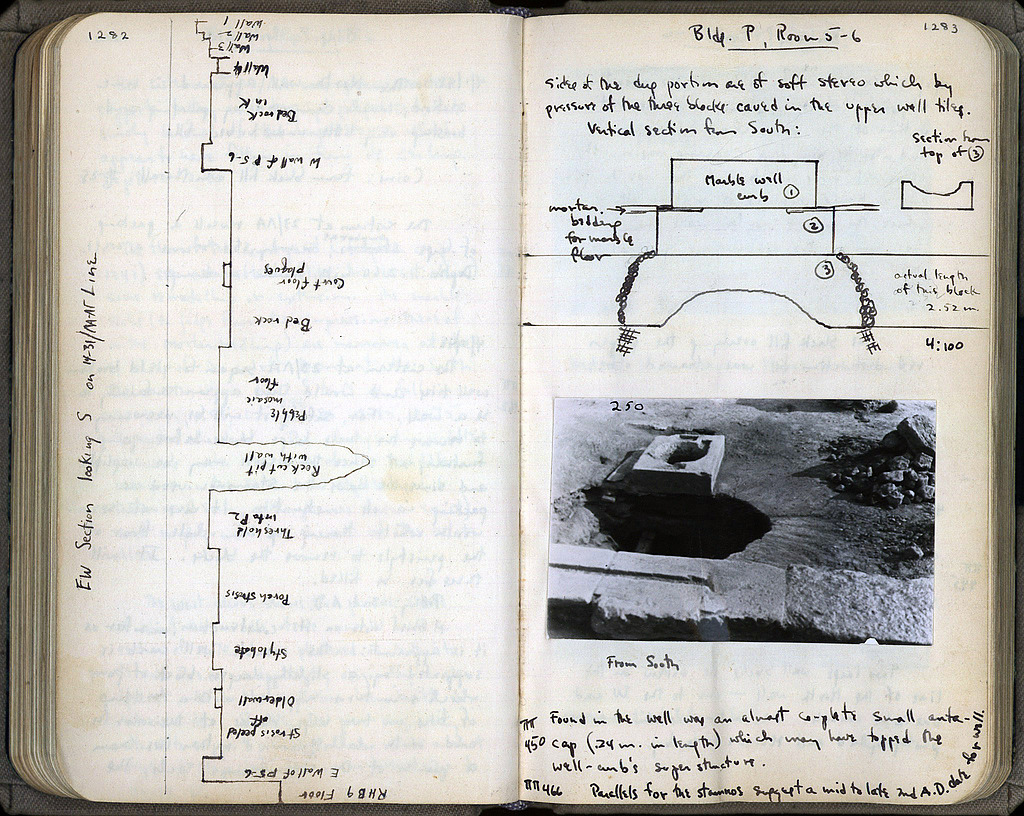 1282
EW Section looking S on 14-31/AA-AT Line
Wall
1
Wall
2
Wall 3
Wall 4
Bedrock
in K
W wall of P5-6
Court floor
plaques
Bed rock
Pebble
mosaic
floor
Rock cut pit
with wall
Threshold
into P2
Porch stosis
Stylobate
Older wall
Strosis pealed
off
E Wall of P5-6
RHB9 Floor
1283
Bldg. P, Room 5-6
sides of the dug portion are of soft stereo which by
pressure of the three blocks caved in the upper well tiles.
Vertical section from South:
section from
top of ③
Marble well
curb ①
mortar
bedding
for marble
floor
②
③
actual length
of this block
2.52 m.
4:100
250
From South
Found in the well was an almost complete small anta-
450 cap (.24 m. in length) which may have topped the
well-curb's superstructure.
466 Parallels for the stamnos suggest a mid to late 2nd A.D. date for well.